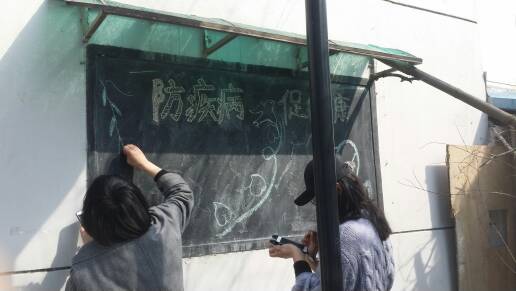 防疾病 促